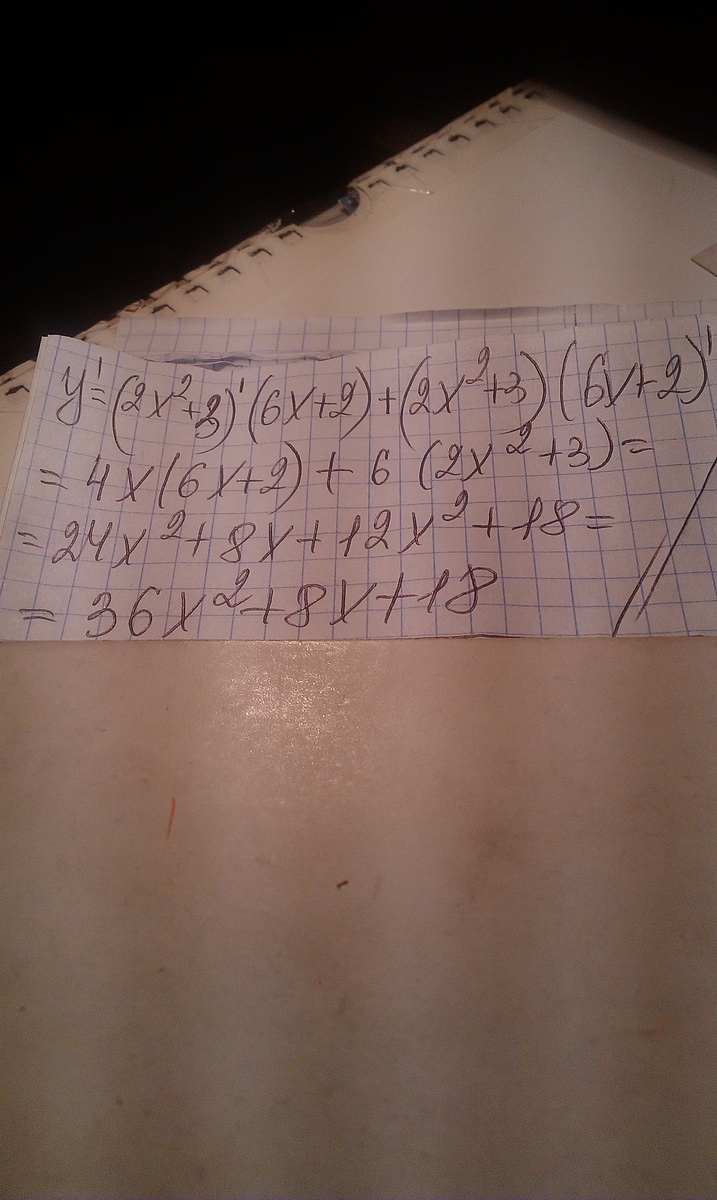 y'=(2x²+3)'(6x+2)+(2x²+3)(6x+2)'
= 4x(6x+2) + 6 (2x²+3)=
= 24x²+8x+12x²+18=
= 36x²+8x+18